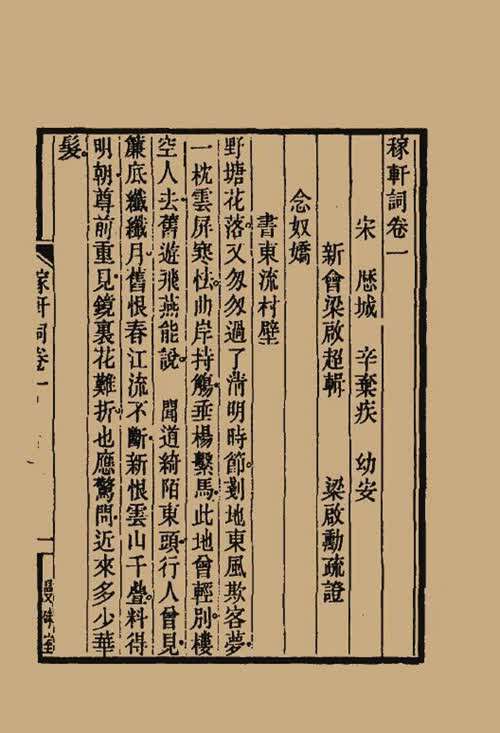 稼軒詞卷一
宋 厯城 辛棄疾 幼安
新會梁啟超輯 梁啟勳疏證
念奴嬌
書東流村壁
野塘花落又匆匆過了清明時節剗地東風欺客夢
一枕雲屏寒怯曲岸持觴垂楊繫馬此地曾輕別樓
空人去舊遊飛燕能說 聞道綺陌東頭行人曾見
簾底纖纖月舊恨春江流不斷新恨雲山千疊料得
明朝尊前重見鏡裏花難折也應驚問近來多少華
髮
稼軒詞卷一